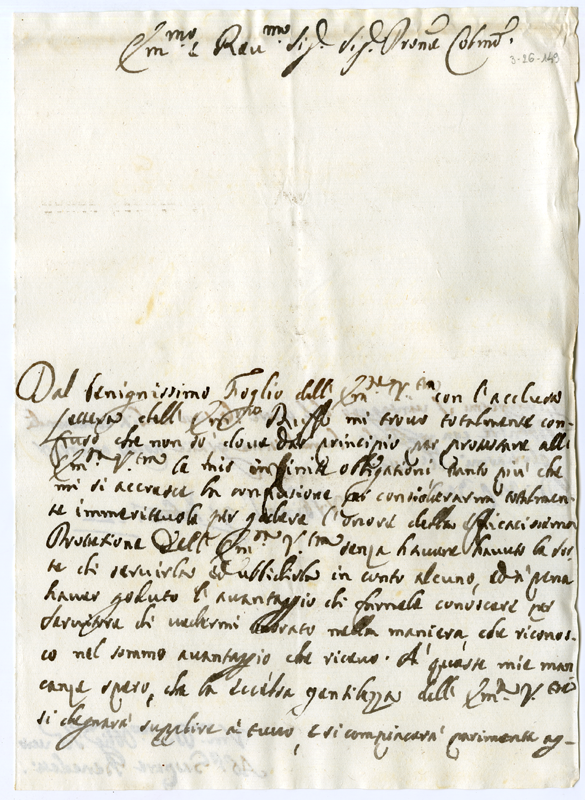 Em.mo e Rev.mo Sig.r Sig.r Prone Colmo.
3-26-149
Dal benignissimo Foglio dell' Em.za V.ra con l'acclusa
lettera dell' Em.mo Ruffo mi trovo totalmente con-
fuso che non sò dove dar principio per protestare all'
Em.za V.ra le mie infinite obligationi tanto più che
mi si accresce la confusione per considerarmi totalmen-
te immeritevole per godere l'onore della efficacissima
Protetione dell' Em.za V.ra senza havere havuto la sor-
te di servirla ed ubbidirla in conto alcuno, ed à pena
haver goduto l'avantaggio di farmele conoscere per
servitore di vedermi onorato nella maniera, che riconos-
co nel sommo avantaggio che ricevo. A' queste mie man-
canze spero, che la eccelsa gentilezza dell' Em.za V.ra
si degnarà supplire à tutto, e si compiacerà parimente ag-